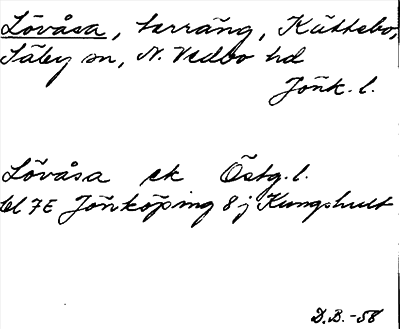 Lövåsa, terräng, Kättebo,
Säby sn, N. Vedbo hd
Jönk. l.
Lövåsa ek Östg. l.
bl 7E Jönköping 8 j Kungshult
D.B. -58